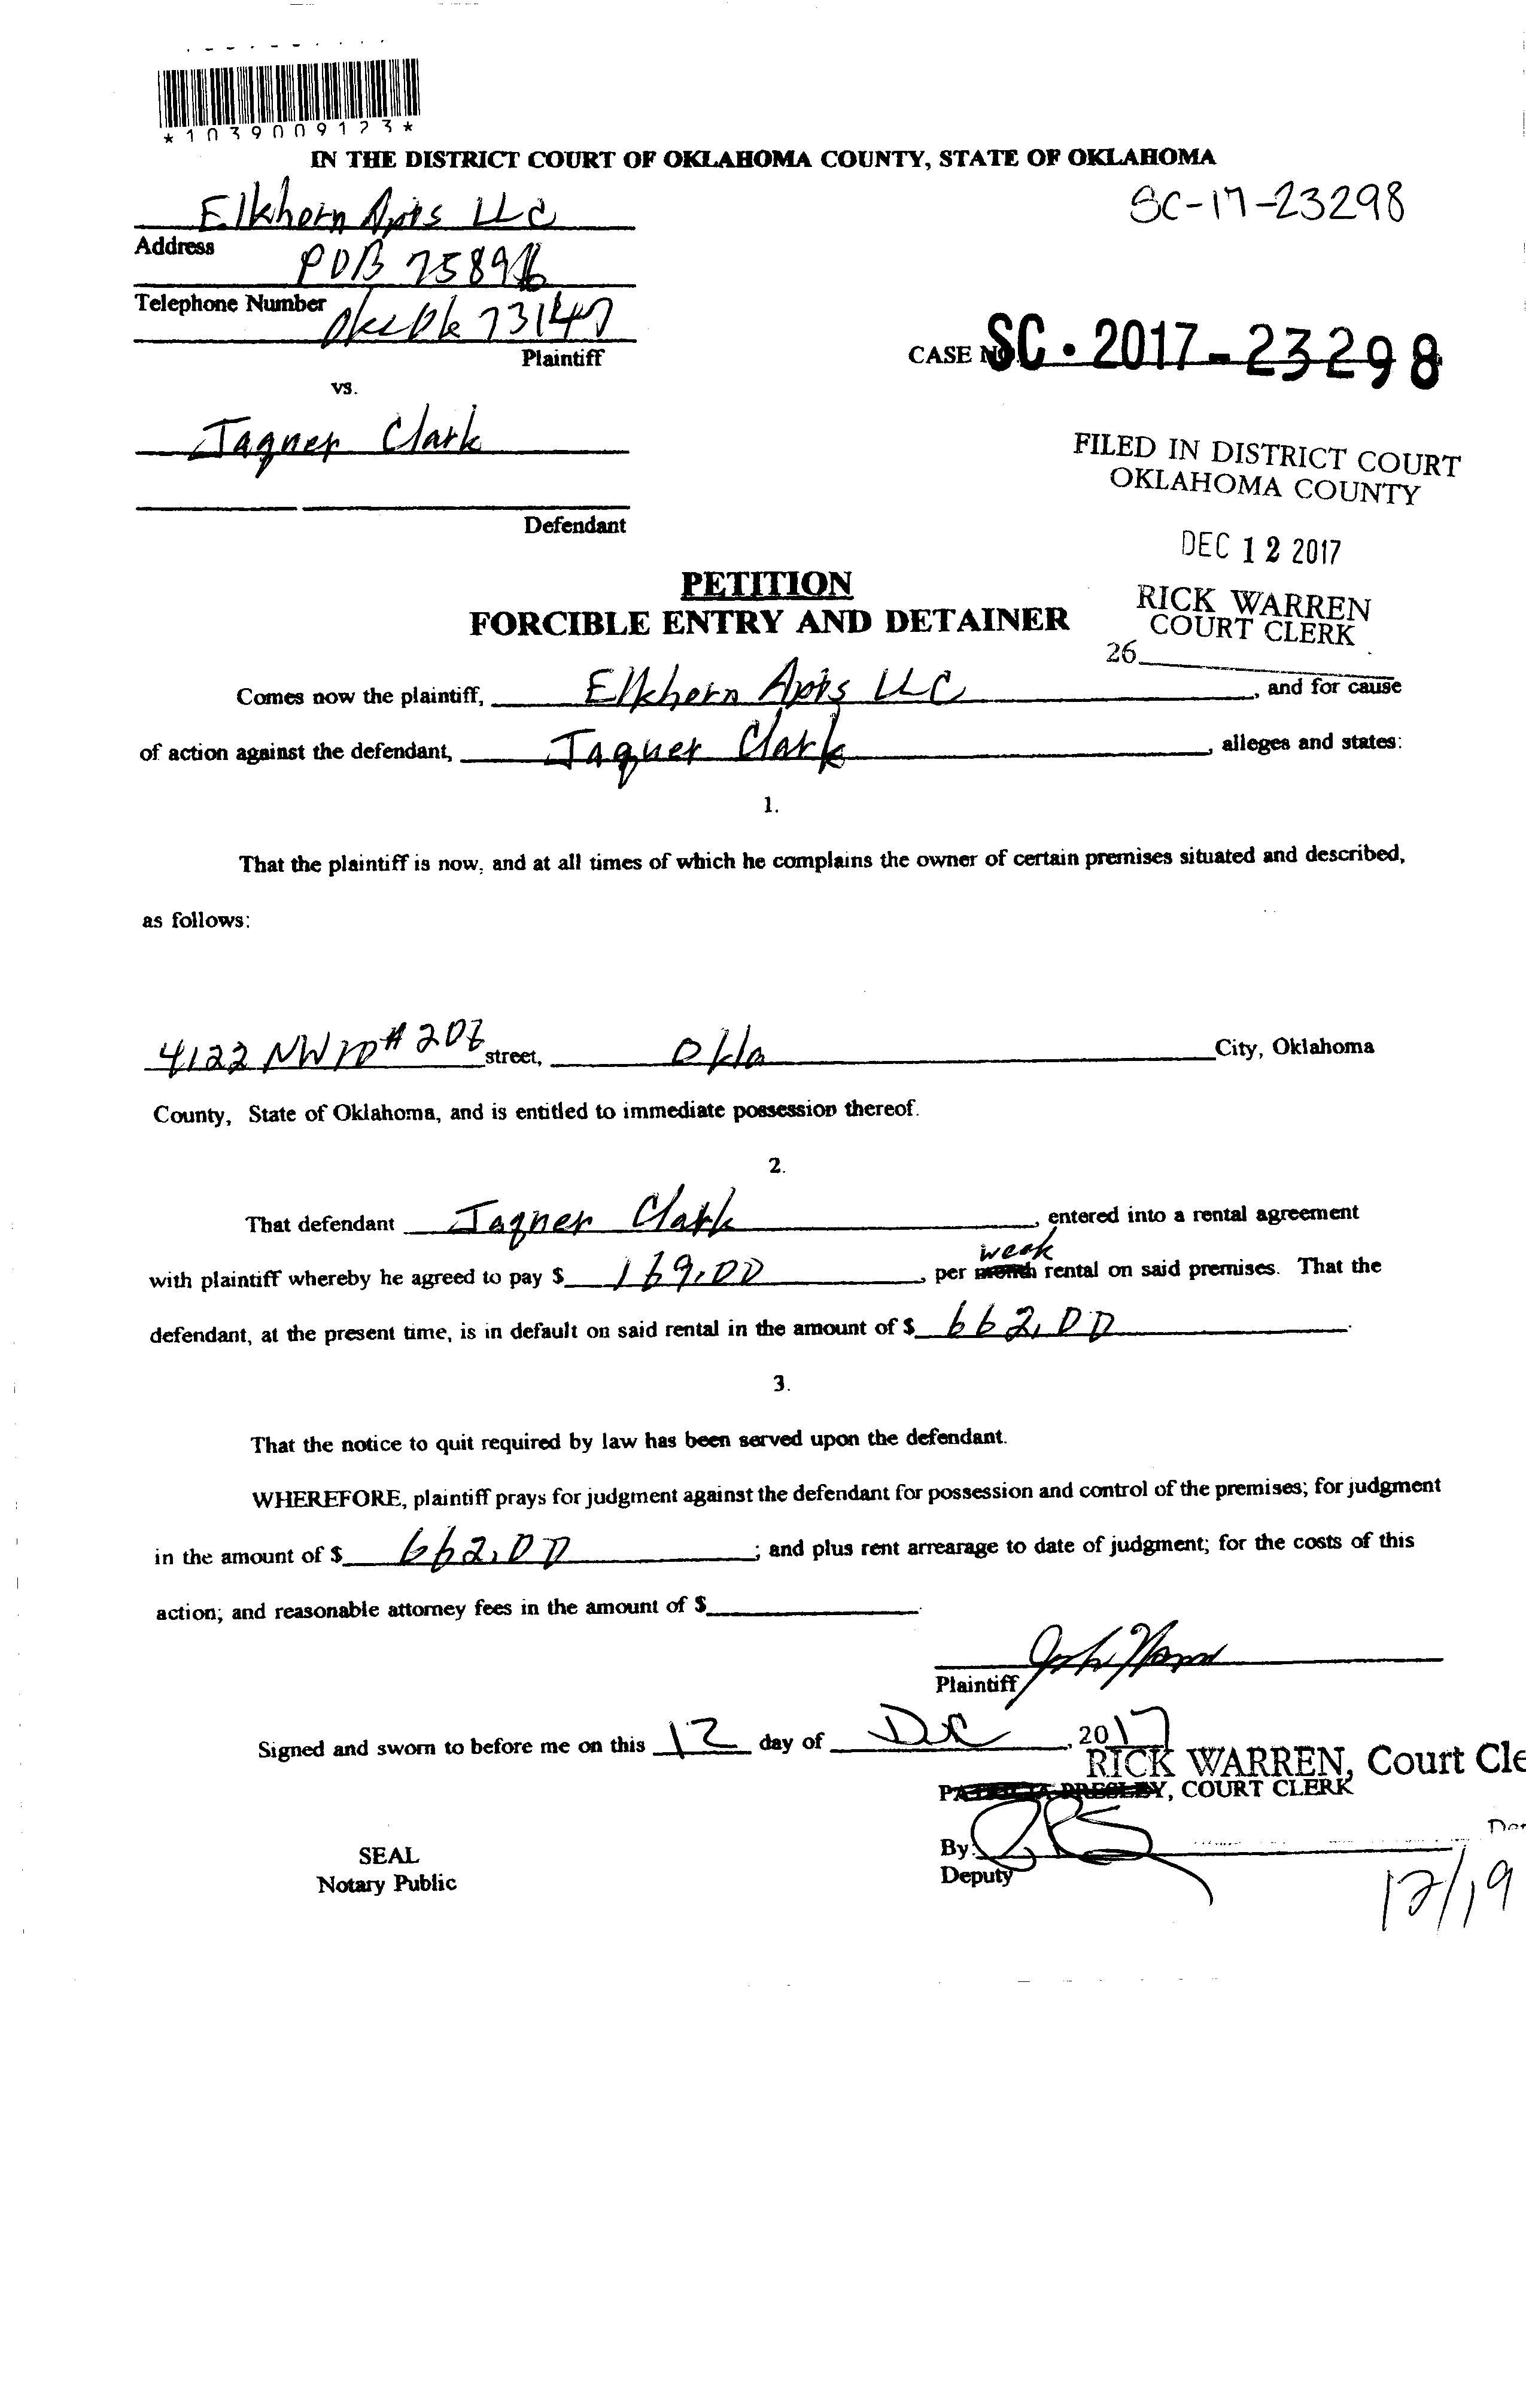 *1039009123*
IN THE DISTRICT COURT OF OKLAHOMA COUNTY, STATE OF OKLAHOMA
Elkhorn Apts LLC
SC-17-23298
Address
POB 75898
Telephone Number
Okc Ok 73147
Plaintiff
CASE NO
SC 2017-23298
vs.
Jaquer Clark
FILED IN DISTRICT COURT
OKLAHOMA COUNTY
Defendant
DEC 12 2017
PETITION
FORCIBLE ENTRY AND DETAINER
RICK WARREN
COURT CLERK
26
Comes now the plaintiff, Elkhorn Apts LLC, and for cause
of action against the defendant, Jaquer Clark, alleges and states:
1.
That the plaintiff is now, and at all times of which he complains the owner of certain premises situated and described,
as follows:
4122 NW 10 # 207 street, Okla City, Oklahoma
County, State of Oklahoma, and is entitled to immediate possession thereof.
2.
That defendant Jaquer Clark, entered into a rental agreement
week
with plaintiff whereby he agreed to pay $ 169.00, per month rental on said premises. That the
defendant, at the present time, is in default on said rental in the amount of $ 662.00.
3.
That the notice to quit required by law has been served upon the defendant.
WHEREFORE, plaintiff prays for judgment against the defendant for possession and control of the premises; for judgment
in the amount of $ 662.00; and plus rent arrearage to date of judgment; for the costs of this
action; and reasonable attorney fees in the amount of $
Plaintiff
Signed and sworn to before me on this 12 day of Dec, 2017
RICK WARREN, Court Cle
PATRICIA PRESLEY, COURT CLERK
By:
Deputy
SEAL
Notary Public
12/19